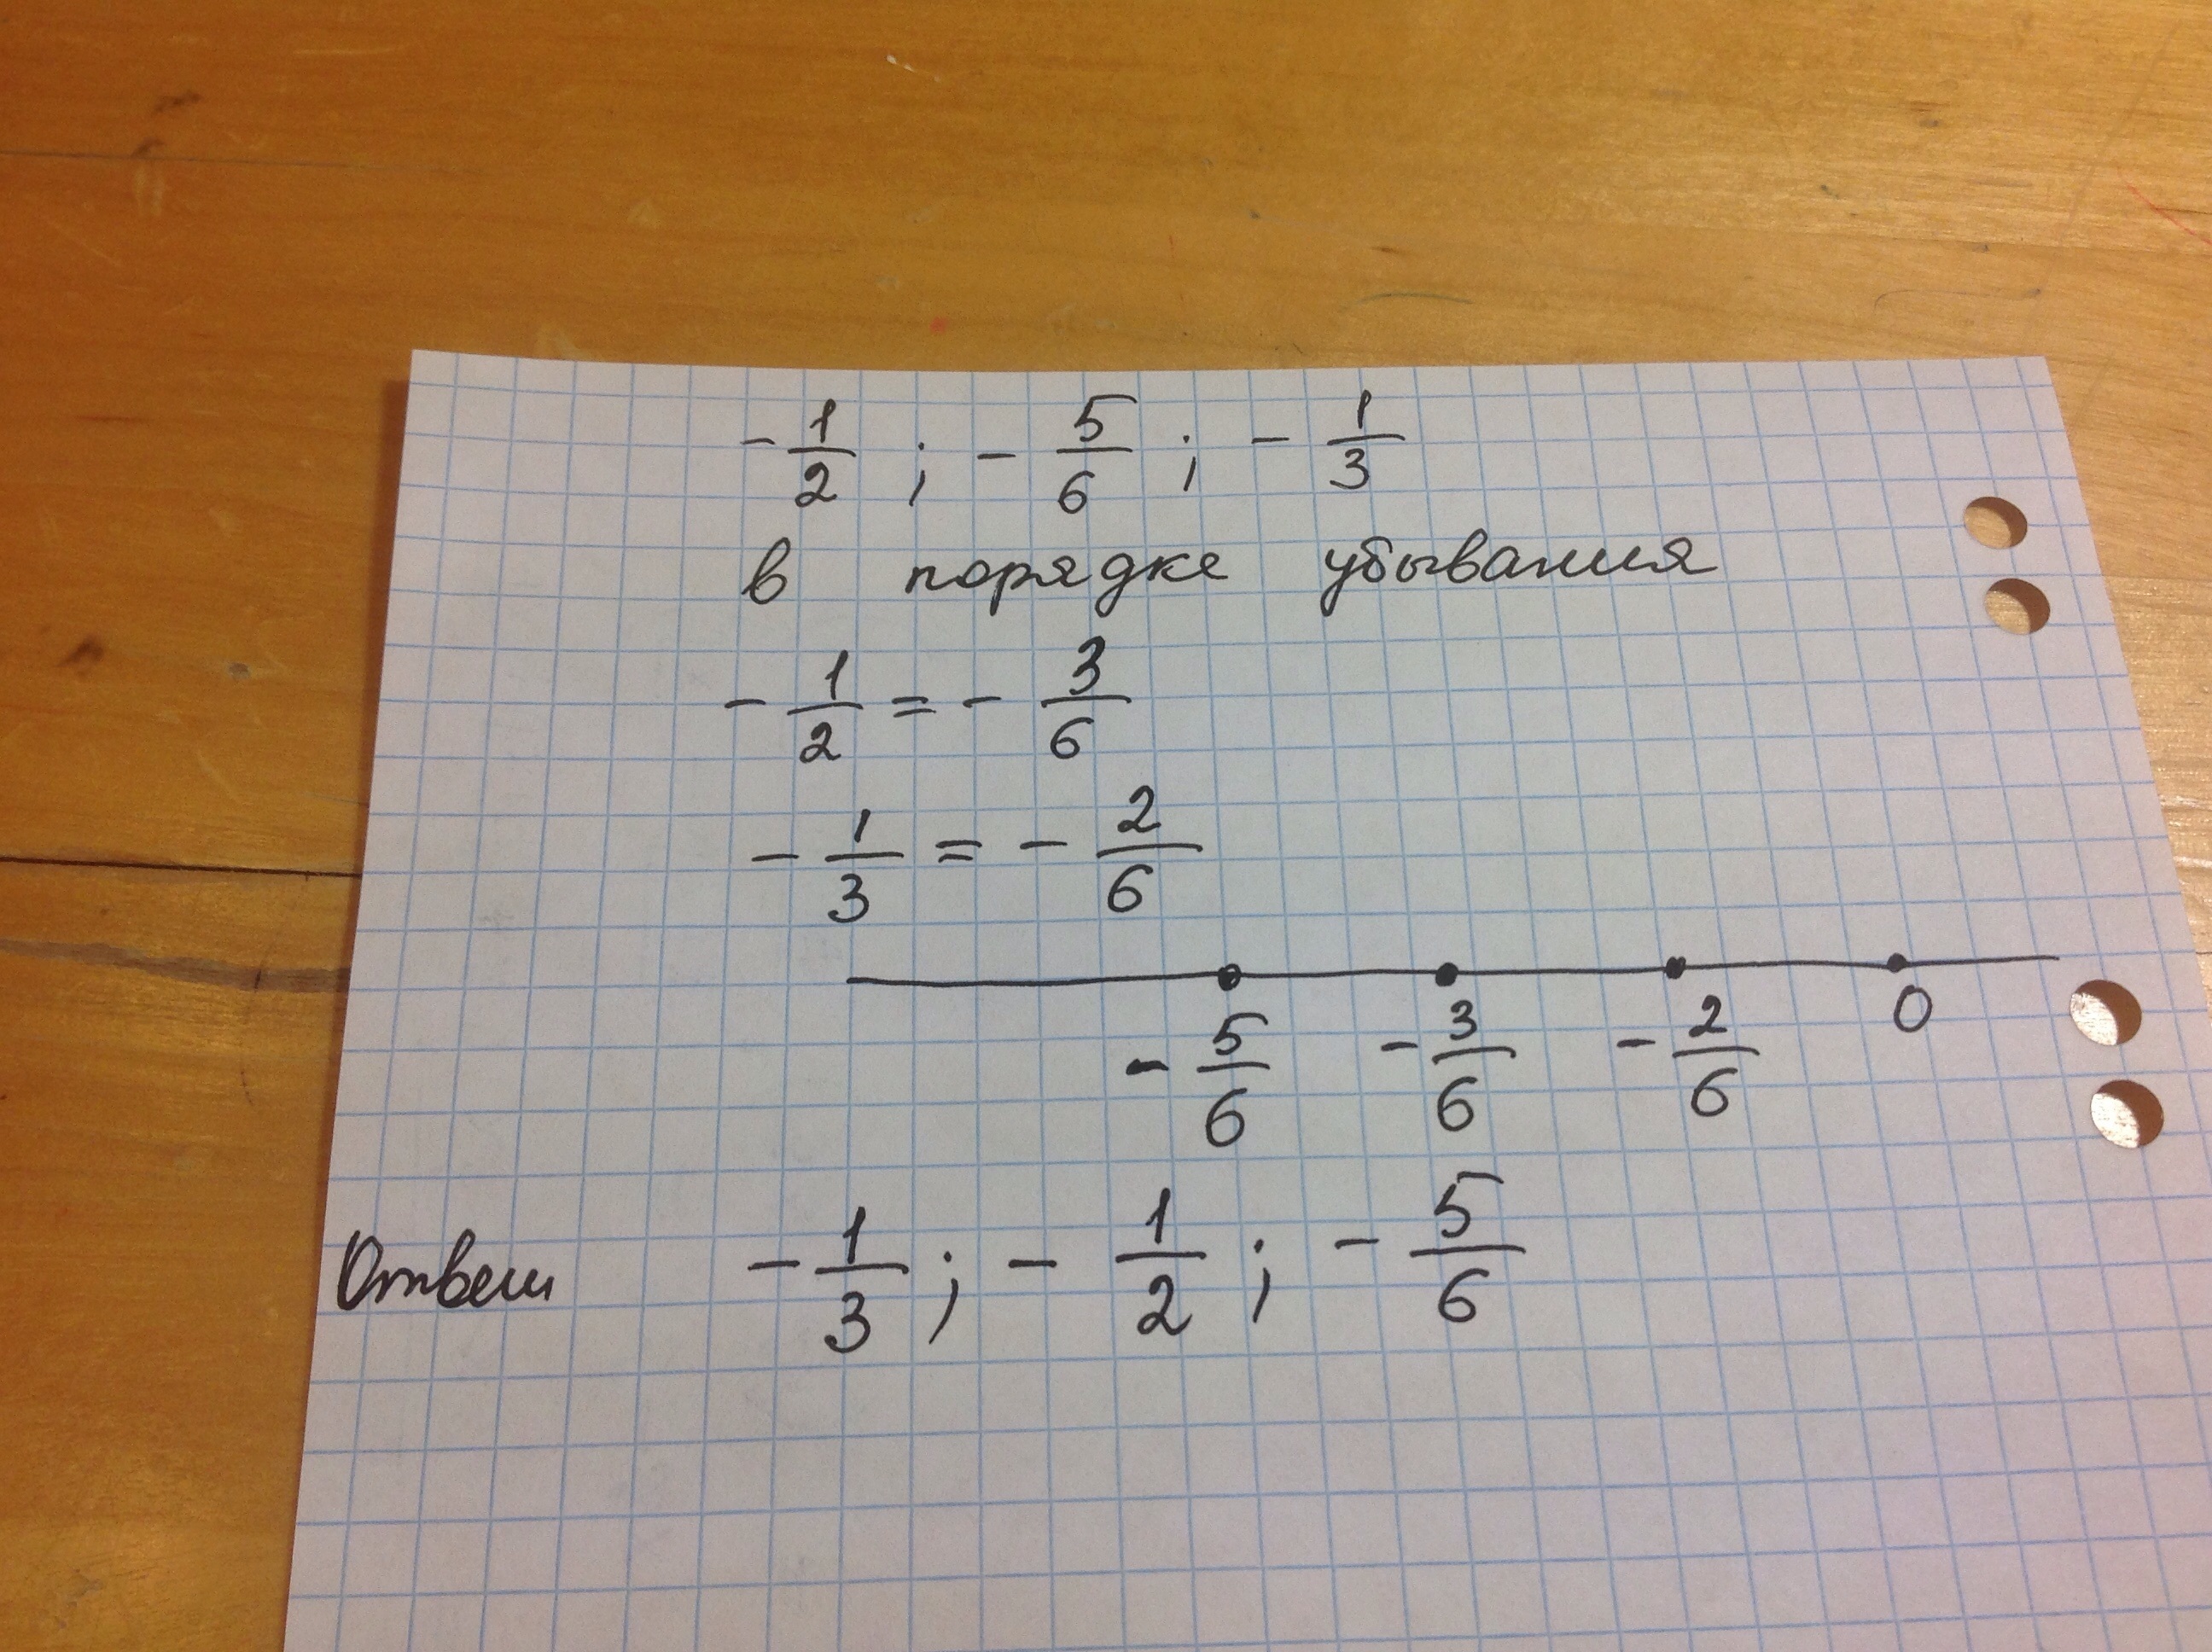 -1/2 ; -5/6 ; -1/3
в порядке убывания
-1/2 = -3/6
-1/3 = -2/6
-5/6 -3/6 -2/6 0
Ответ -1/3 ; -1/2 ; -5/6